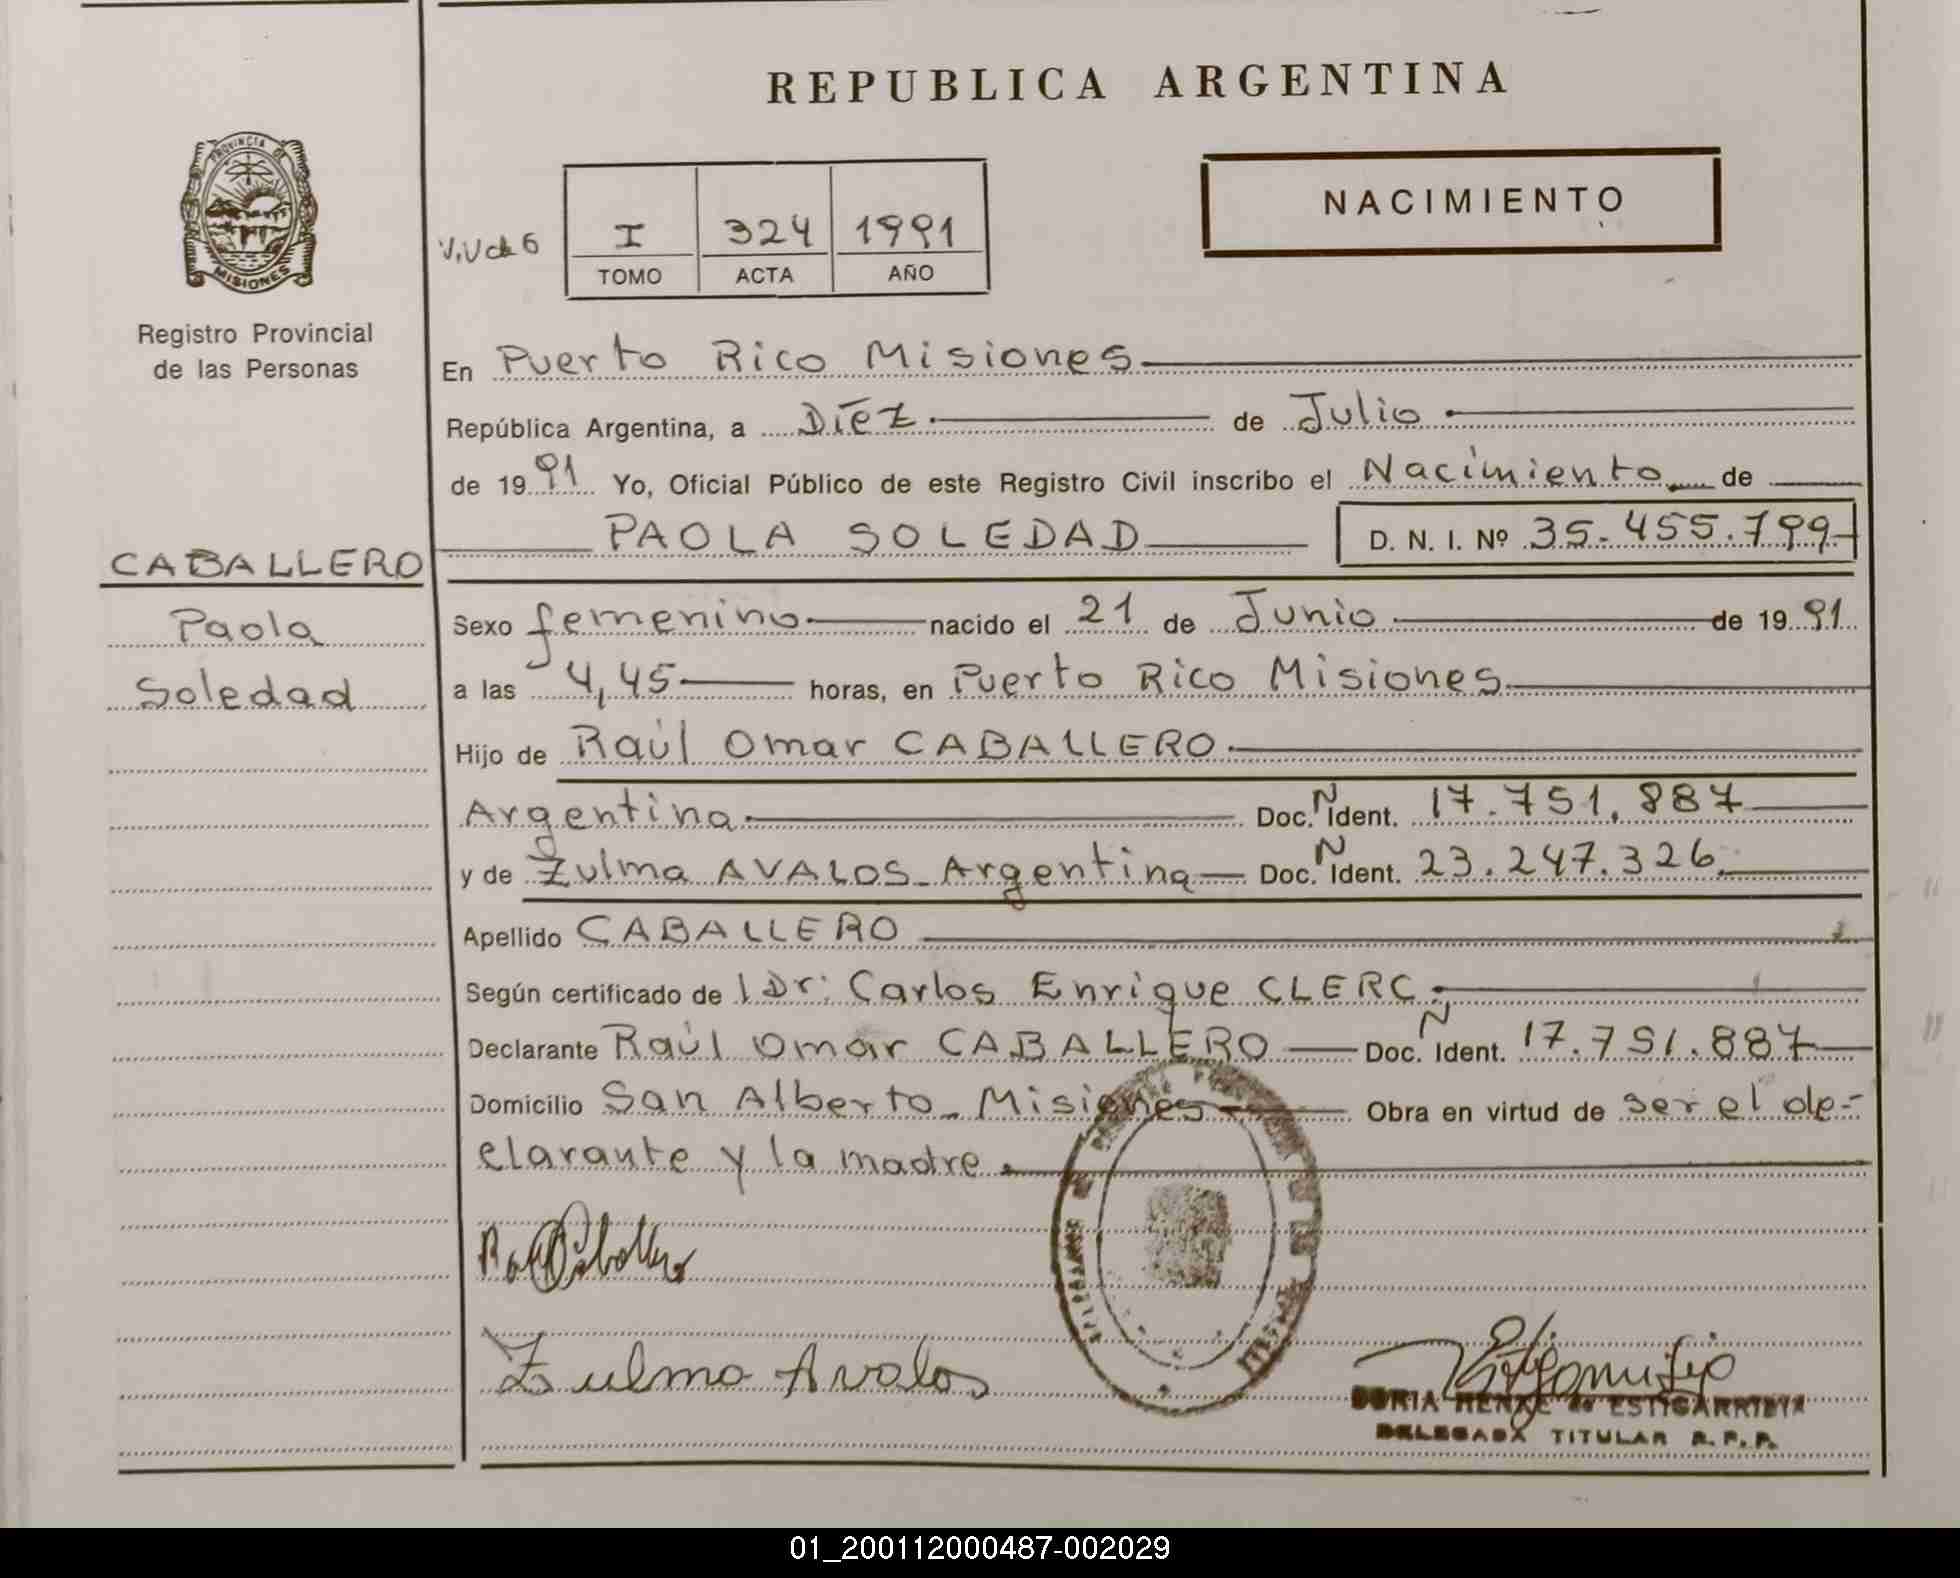 REPUBLICA ARGENTINA
PROVINCIA DE
MISIONES
Registro Provincial
de las Personas
NACIMIENTO
I 324 1991
TOMO ACTA AÑO
En Puerto Rico Misiones
República Argentina, a Diez de Julio
de 1991 Yo, Oficial Público de este Registro Civil inscribo el Nacimiento de
PAOLA SOLEDAD D. N. I. Nº 35.455.799
CABALLERO
Paola
Soledad
Sexo femenino nacido el 21 de Junio de 1991
a las 4,45 horas, en Puerto Rico Misiones
Hijo de Raúl Omar CABALLERO
Argentina Doc. N Ident. 17.751.887
y de Zulma AVALOS - Argentina Doc. N Ident. 23.247.326
Apellido CABALLERO
Según certificado de l Dr: Carlos Enrique CLERC
Declarante Raúl Omar CABALLERO Doc. N Ident. 17.751.887
Domicilio San Alberto - Misiones Obra en virtud de ser el de-
clarante y la madre
Zulma Avalos
de ESTIGARRIBIA
DELEGADA TITULAR R. P. P.
01_200112000487-002029